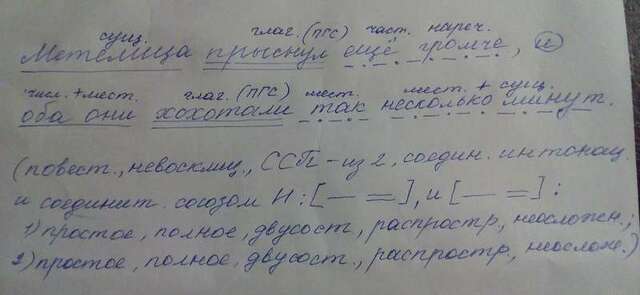 сущ. глаг. (ПГС) част. нареч.
Метелица прыснул ещё громче, и
числ.+мест. глаг. (ПГС) мест. мест. + сущ.
оба они хохотали так несколько минут.
(повест., невосклиц., ССП-из 2, соедин. интонац.
и соединит. союзом И: [— =], и [— =]:
1) простое, полное, двусост., распростр., неосложн.,
2) простое, полное, двусост., распростр., неослож.)